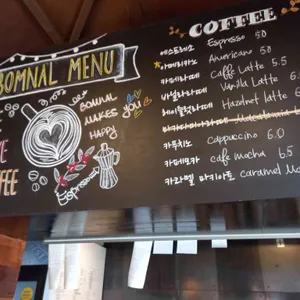 BOMNAL MENU
BOMNAL
MAKES
YOU
HAPPY
Espresso
COFFEE
에스프레소 Espresso 5.0
아메리카노 Americano 5.0
카페라떼 Caffe Latte 5.5
바닐라라떼 Vanilla Latte 6.
헤이즐넛라떼 Hazelnut latte 6
카푸치노 cappuccino 6.0
카페모카 cafe mocha 6.5
카라멜 마키아토 caramel Ma